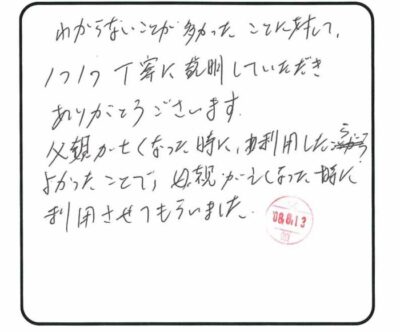 わからないことが多かったことに対して、
1つ1つ丁寧に説明していただき
ありがとうございます。
父親が亡くなった時に、利用した
よかったことで、母親が亡くなった時に
利用させてもらいました。